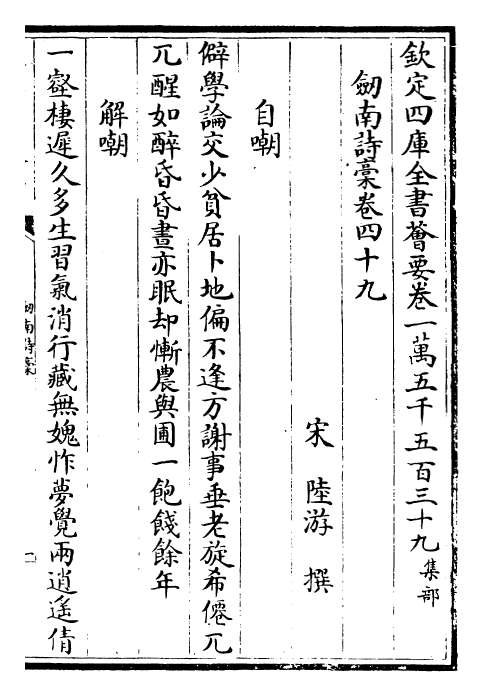 欽定四庫全書薈要卷一萬五千五百三十九 集部
劒南詩藁卷四十九
宋 陸游 撰
自嘲
僻學論交少貧居卜地偏不逢方謝事垂老旋希僊兀
兀醒如醉昏昏晝亦眠却慚農與圃一飽餞餘年
解嘲
一壑棲遲久多生習氣消行藏無媿怍夢覺兩逍遥倩
劒南詩藁
一